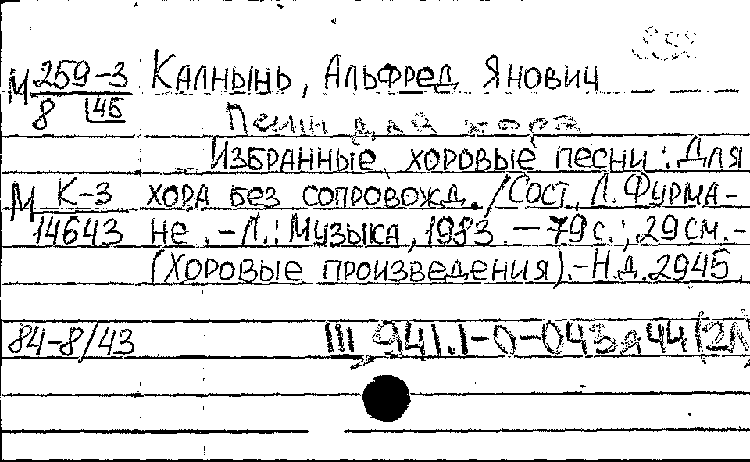 М 259-3 Калнынь, Альфред Янович
8 46
Песни для хора
Избранные хоровые песни: Для
М К-3 хора без сопровожд. / Сост. Л. Фурма-
14643 не. - Л.: Музыка, 1983. - 79 с.; 29 см. -
(Хоровые произведения). - Н.д. 2945.
84-8/43 III 941.1-0-043я44(2Л)